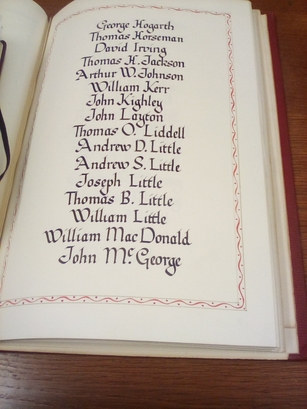 George Hogarth
Thomas Horseman
David Irving
Thomas H. Jackson
Arthur W. Johnson
William Kerr
John Kighley
John Layton
Thomas O. Liddell
Andrew D. Little
Andrew S. Little
Joseph Little
Thomas B. Little
William Little
William MacDonald
John McGeorge